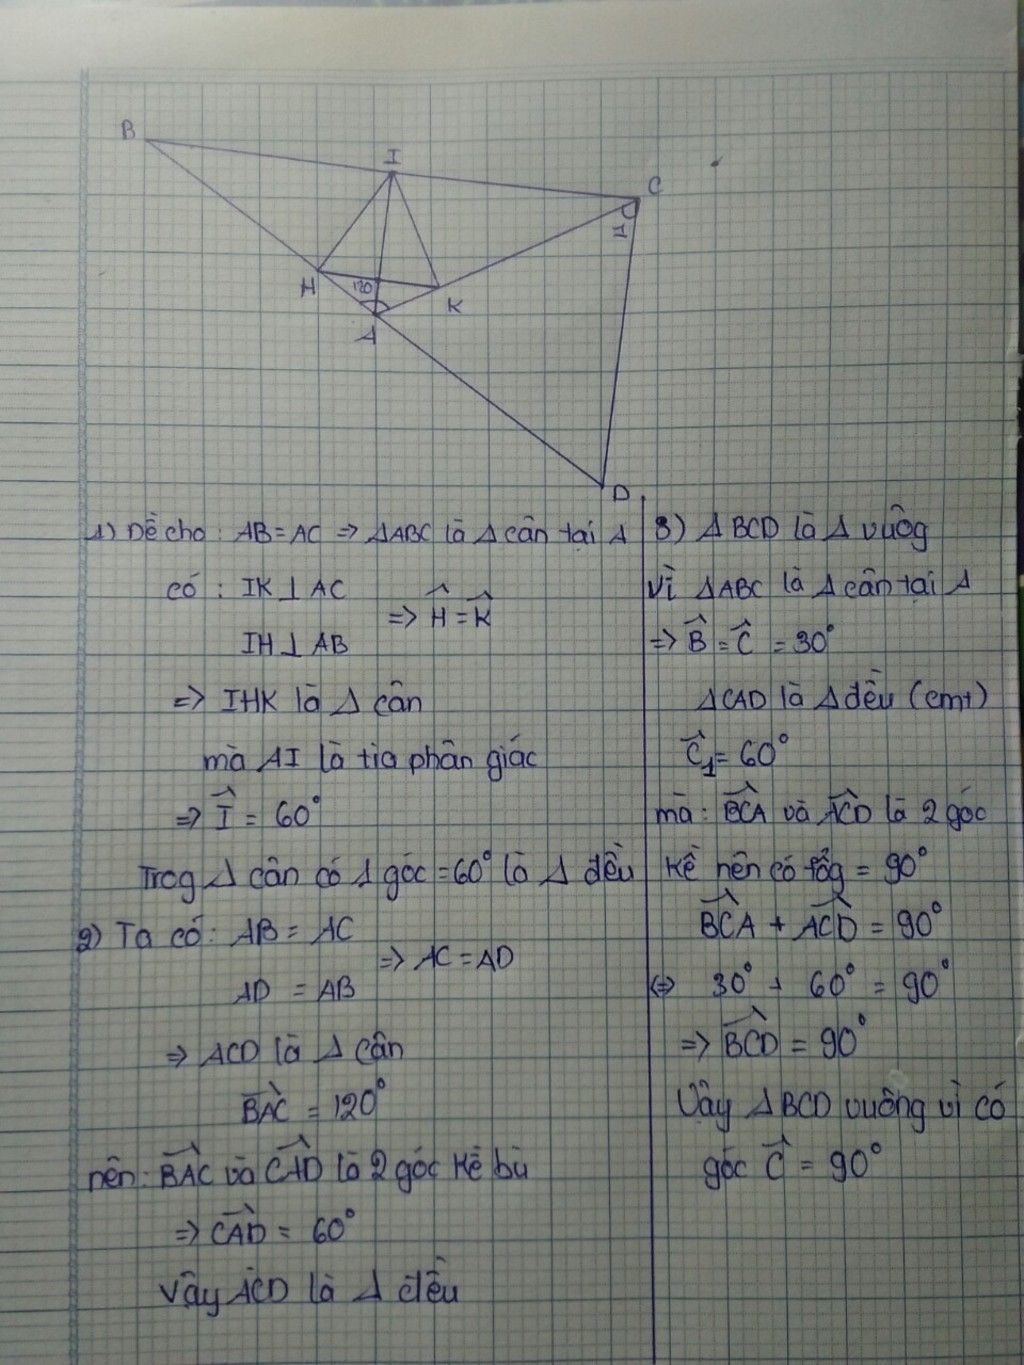 B
I
C
1
H
120
K
A
D
1) Đề cho : AB = AC => ΔABC là Δ cân tại A
có : IK ⊥ AC
=> Ĥ = K̂
IH ⊥ AB
=> IHK là Δ cân
mà AI là tia phân giác
=> Î = 60°
Trog Δ cân có 1 góc = 60° là Δ đều
2) Ta có : AB = AC
=> AC = AD
AD = AB
=> ACD là Δ cân
B̂AC = 120°
nên : B̂AC và ĈAD là 2 góc kề bù
=> ĈAD = 60°
Vậy ACD là Δ đều
3) Δ BCD là Δ vuôg
Vì ΔABC là Δ cân tại A
=> B̂ = Ĉ = 30°
ΔCAD là Δ đều (cmt)
Ĉ1 = 60°
mà : B̂CA và ÂCD là 2 góc
kề nên có tổg = 90°
B̂CA + ÂCD = 90°
<=> 30° + 60° = 90°
=> B̂CD = 90°
Vậy ΔBCD vuông vì có
góc Ĉ = 90°